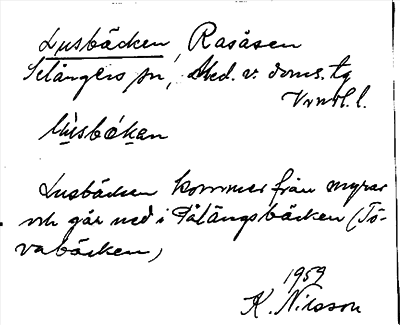 Lusbäcken, Rasåsen
Selångers sn, Med. v. doms. tg
Vrnrl. l.
Lusbäcken kommer från myrar
och går ned i Pålängsbäcken (Tö-
vabäcken)
1959
K. Nilsson